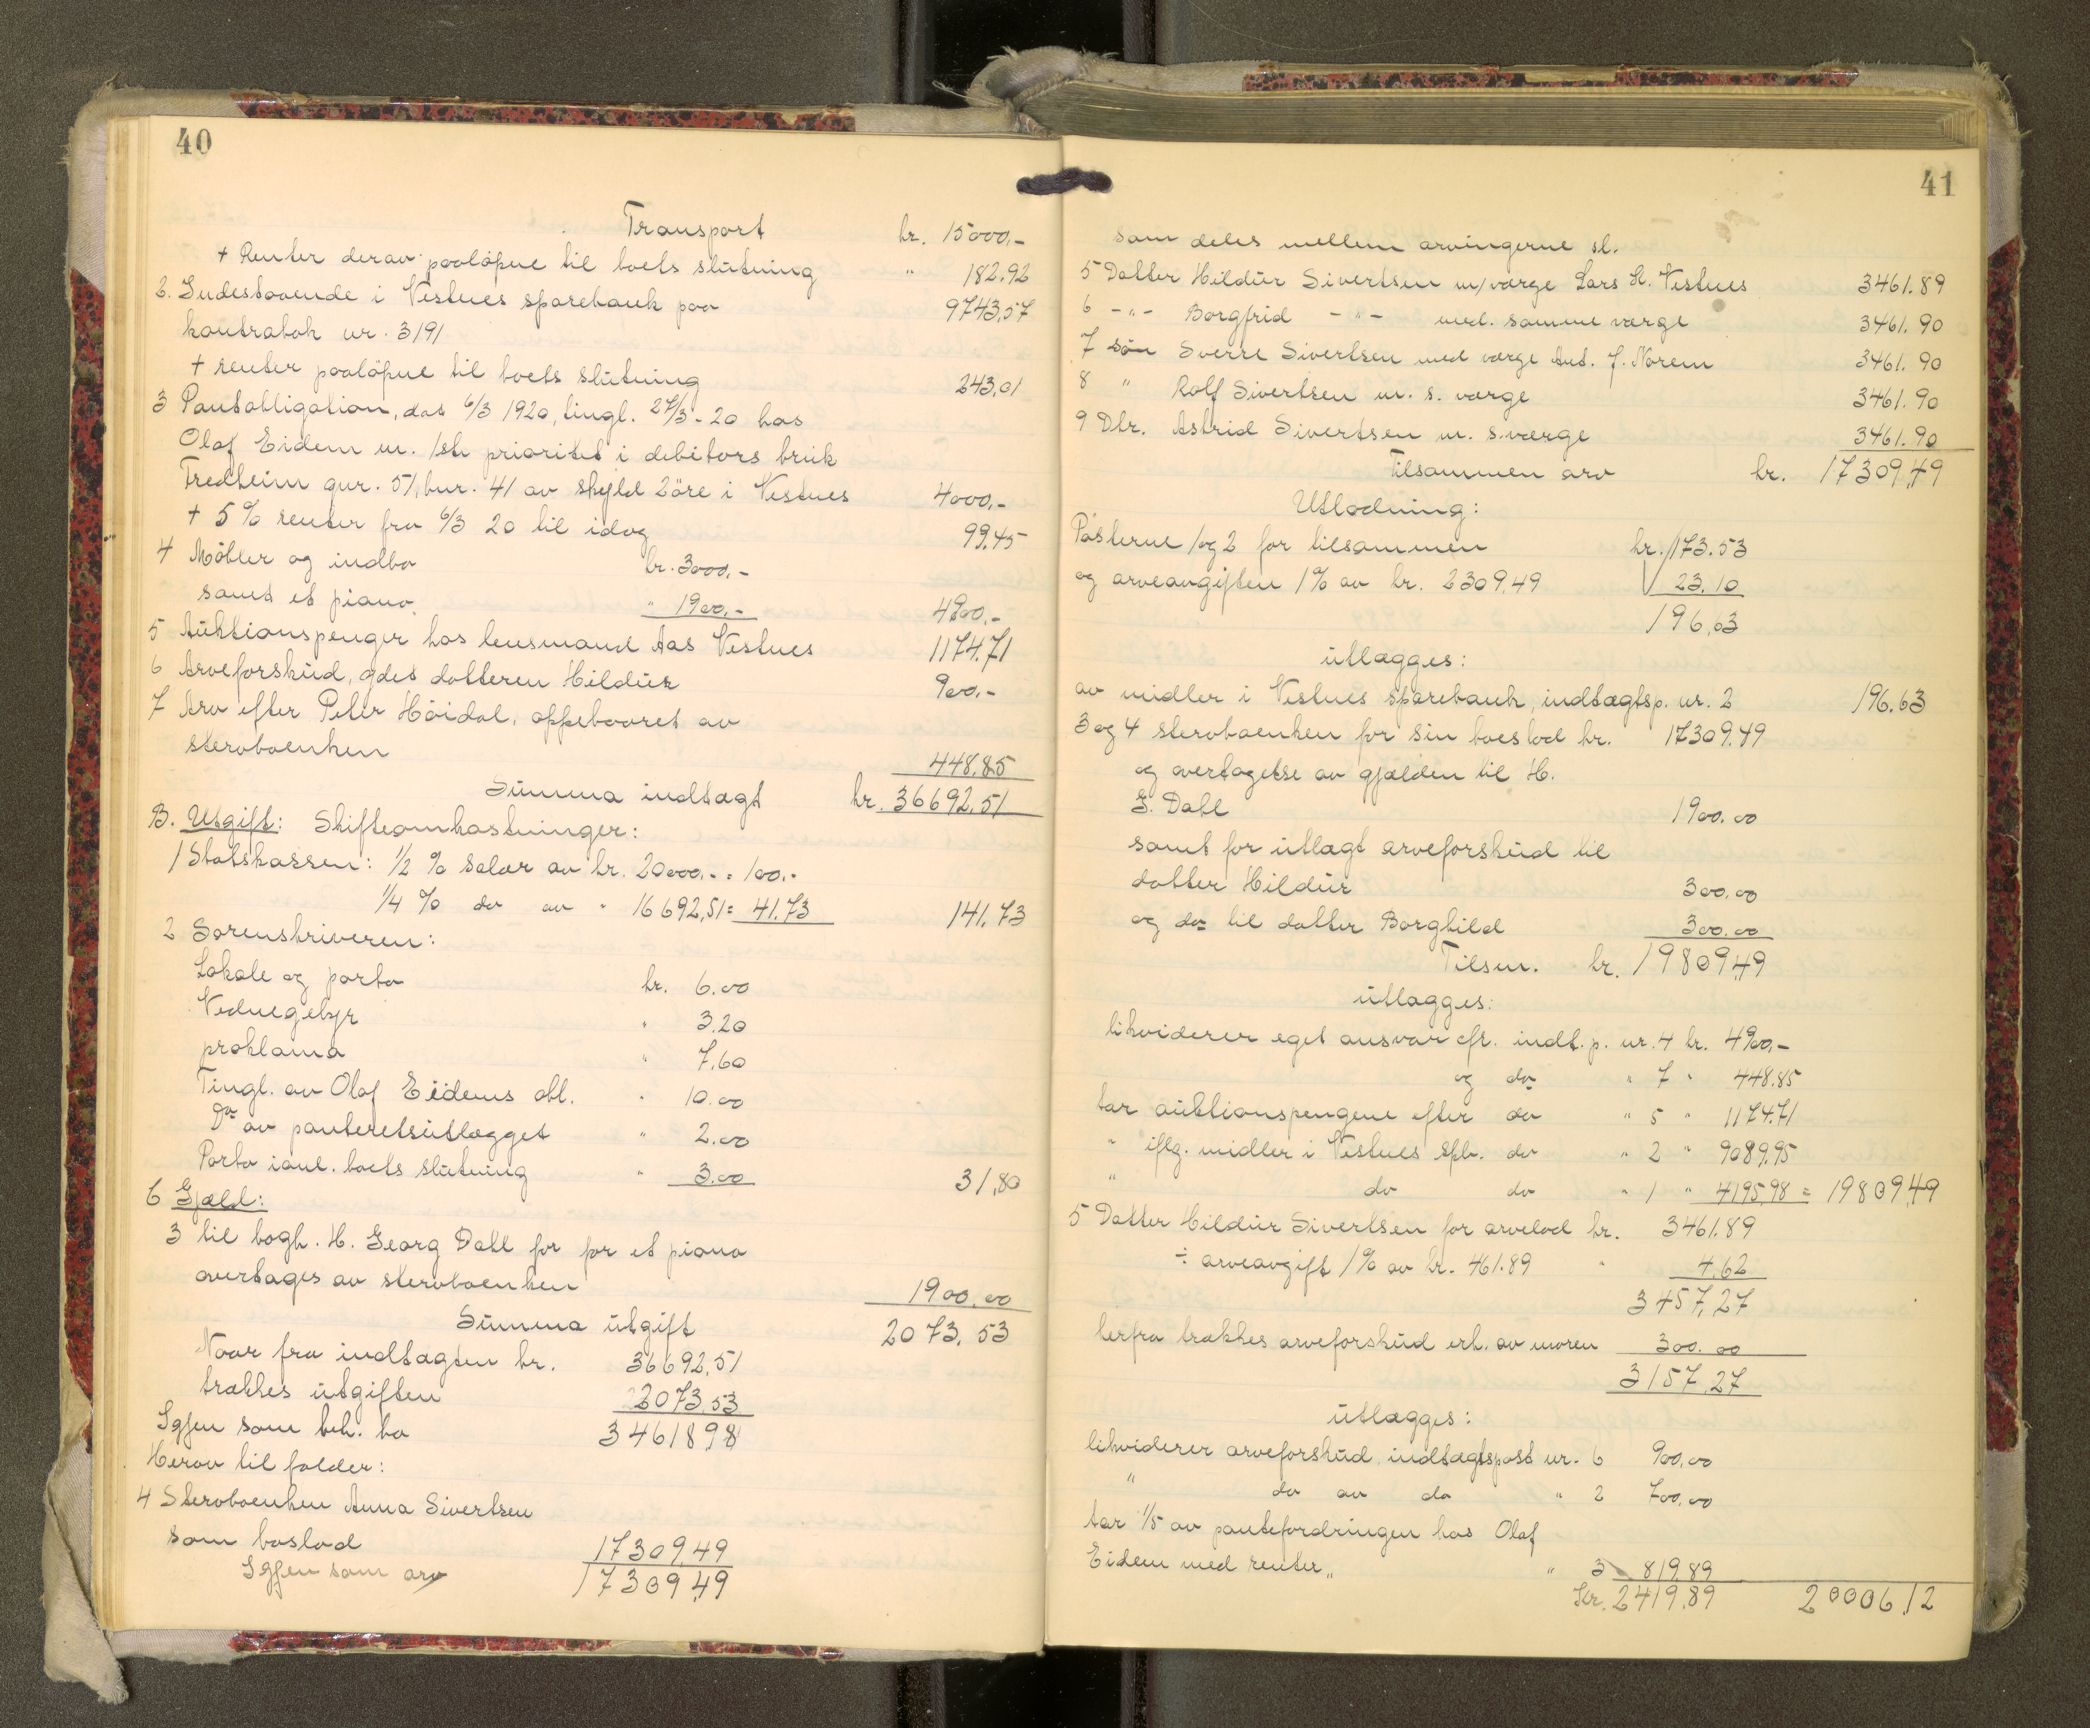 40
Transport kr. 15000,-
+ Renter derav paaløpne til boets slutning " 182.92
2. Indestaaende i Vestnes sparebank paa 9743,57
kontrabok nr. 3191
+ renter paaløpne til boets slutning 243,01
3 Pantobligation, dat 6/3 1920, tingl. 27/3-20 hos
Olaf Eidem m. 1ste prioritet i debitors bruk
Fredheim gnr. 51, bnr. 41 av skyld 2 øre i Vestnes 4000,-
+ 5% renter fra 6/3 20 til idag 99,45
4 Møbler og indbo kr. 3000,-
samt et piano " 1900,- 4900,-
5 Auktionspenger hos lensmand Aas Vestnes 1174,71
6 Arveforskud, gdes datteren Hildur 900,-
7 Arv efter Peter Høidal, oppebaaret av
stervboenken 448,85
Summa indtægt kr. 36692,51
B. Utgift: Skifteomkostninger:
1 Statskassen: 1/2 % salær av kr. 20000,- = 100,-
1/4 % do av " 16692,51 = 41.73 141.73
2 Sorenskriveren:
Lokale og porto kr. 6.00
Vidnegebyr " 3.20
proklama " 7,60
Tingl. av Olaf Eidems obl. " 10.00
Do av panteretsutlægget " 2.00
Porto i anl. boets slutning " 3.00 31,80
C Gjæld:
3 til bogh. H. Georg Dahl for for et piano
overtages av stervboenken 1900,00
Summa utgift 2073,53
Naar fra indtægten kr. 36692,51
trækkes utgiften 2073,53
Igjen som beh. bo 34618,98
Herav tilfalder:
4 Stervboenken Anna Sivertsen
som boslod 17309,49
Igjen som arv 17309,49
41
som deles mellem arvingerne sl.
5 Datter Hildur Sivertsen m/værge Lars K. Vestnes 3461.89
6 -"- Borgfrid -"- med. samme værge 3461.90
7 søn Sverre Sivertsen med værge Ant. J. Norem 3461.90
8 " Rolf Sivertsen m. s. værge 3461.90
9 Dtr. Astrid Sivertsen m. s. værge 3461.90
Tilsammen arv kr. 17309,49
Utlodning:
Posterne 1 og 2 for tilsammen kr. 173.53
og arveavgiften 1% av kr. 2309,49 23.10
196,63
utlægges:
av midler i Vestnes sparebank, indtægtsp. nr. 2 196.63
3 og 4 stervboenken for sin boeslod kr. 17309.49
og overtagelse av gjælden til H.
G. Dahl 1900.00
samt for utlagt arveforskud til
datter Hildur 300.00
og do til datter Borghild 300.00
Tilsm. kr. 19809,49
utlægges:
likviderer eget ansvar efr. indt.p. nr. 4 kr. 4900,-
og do " 7 " 448.85
tar auktionspengene efter do " 5 " 1174.71
" iflg. midler i Vestnes spb. do " 2 " 9089,95
" do do " 1 " 4195,98 = 19809,49
5 Datter Hildur Sivertsen for arvelod kr. 3461.89
÷ arveavgift 1% av kr. 461.89 " 4,62
3457,27
herfra trækkes arveforskud erh. av moren 300.00
3157,27
utlægges:
likviderer arveforskud, indtægtspost nr. 6 900,00
" do av do " 2 700,00
tar 1/5 av pantefordringen hos Olaf
Eidem med renter " " 3 819.89
Kr. 2419,89 20006,12